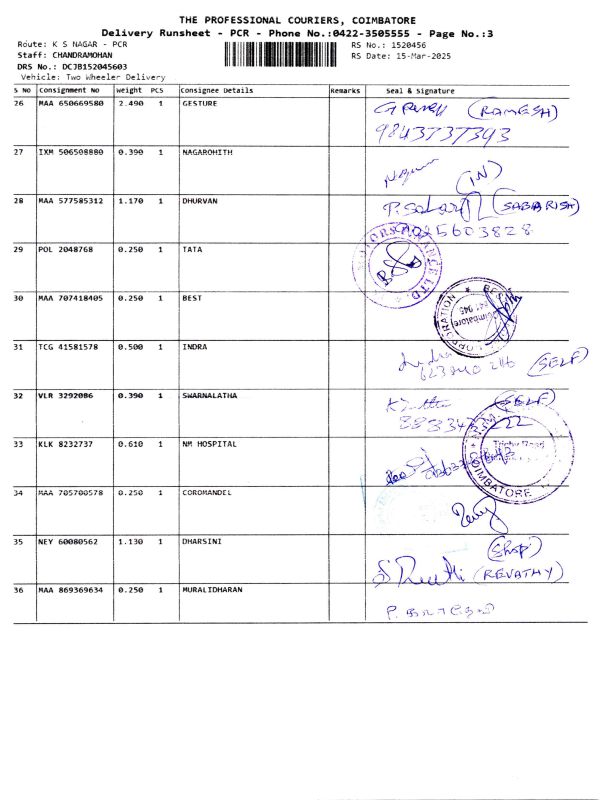 THE PROFESSIONAL COURIERS, COIMBATORE
Delivery Runsheet - PCR - Phone No.:0422-3505555 - Page No.:3
Route: K S NAGAR - PCR RS No.: 1520456
Staff: CHANDRAMOHAN RS Date: 15-Mar-2025
DRS No.: DCJB152045603
Vehicle: Two Wheeler Delivery
S No Consignment No Weight PCS Consignee Details Remarks Seal & Signature
26 MAA 650669580 2.490 1 GESTURE (RAMESH)
9843737343
27 IXM 506508880 0.390 1 NAGAROHITH
(IN)
28 MAA 577585312 1.170 1 DHURVAN (SABARISH)
29 POL 2048768 0.250 1 TATA
30 MAA 707418405 0.250 1 BEST
31 TCG 41581578 0.500 1 INDRA
Indra (SELF)
32 VLR 3292086 0.390 1 SWARNALATHA (SELF)
33 KLK 8232737 0.610 1 NM HOSPITAL Trichy Road
COIMBATORE
34 MAA 705700578 0.250 1 COROMANDEL
35 NEY 60080562 1.130 1 DHARSINI
(REVATHY)
36 MAA 869369634 0.250 1 MURALIDHARAN